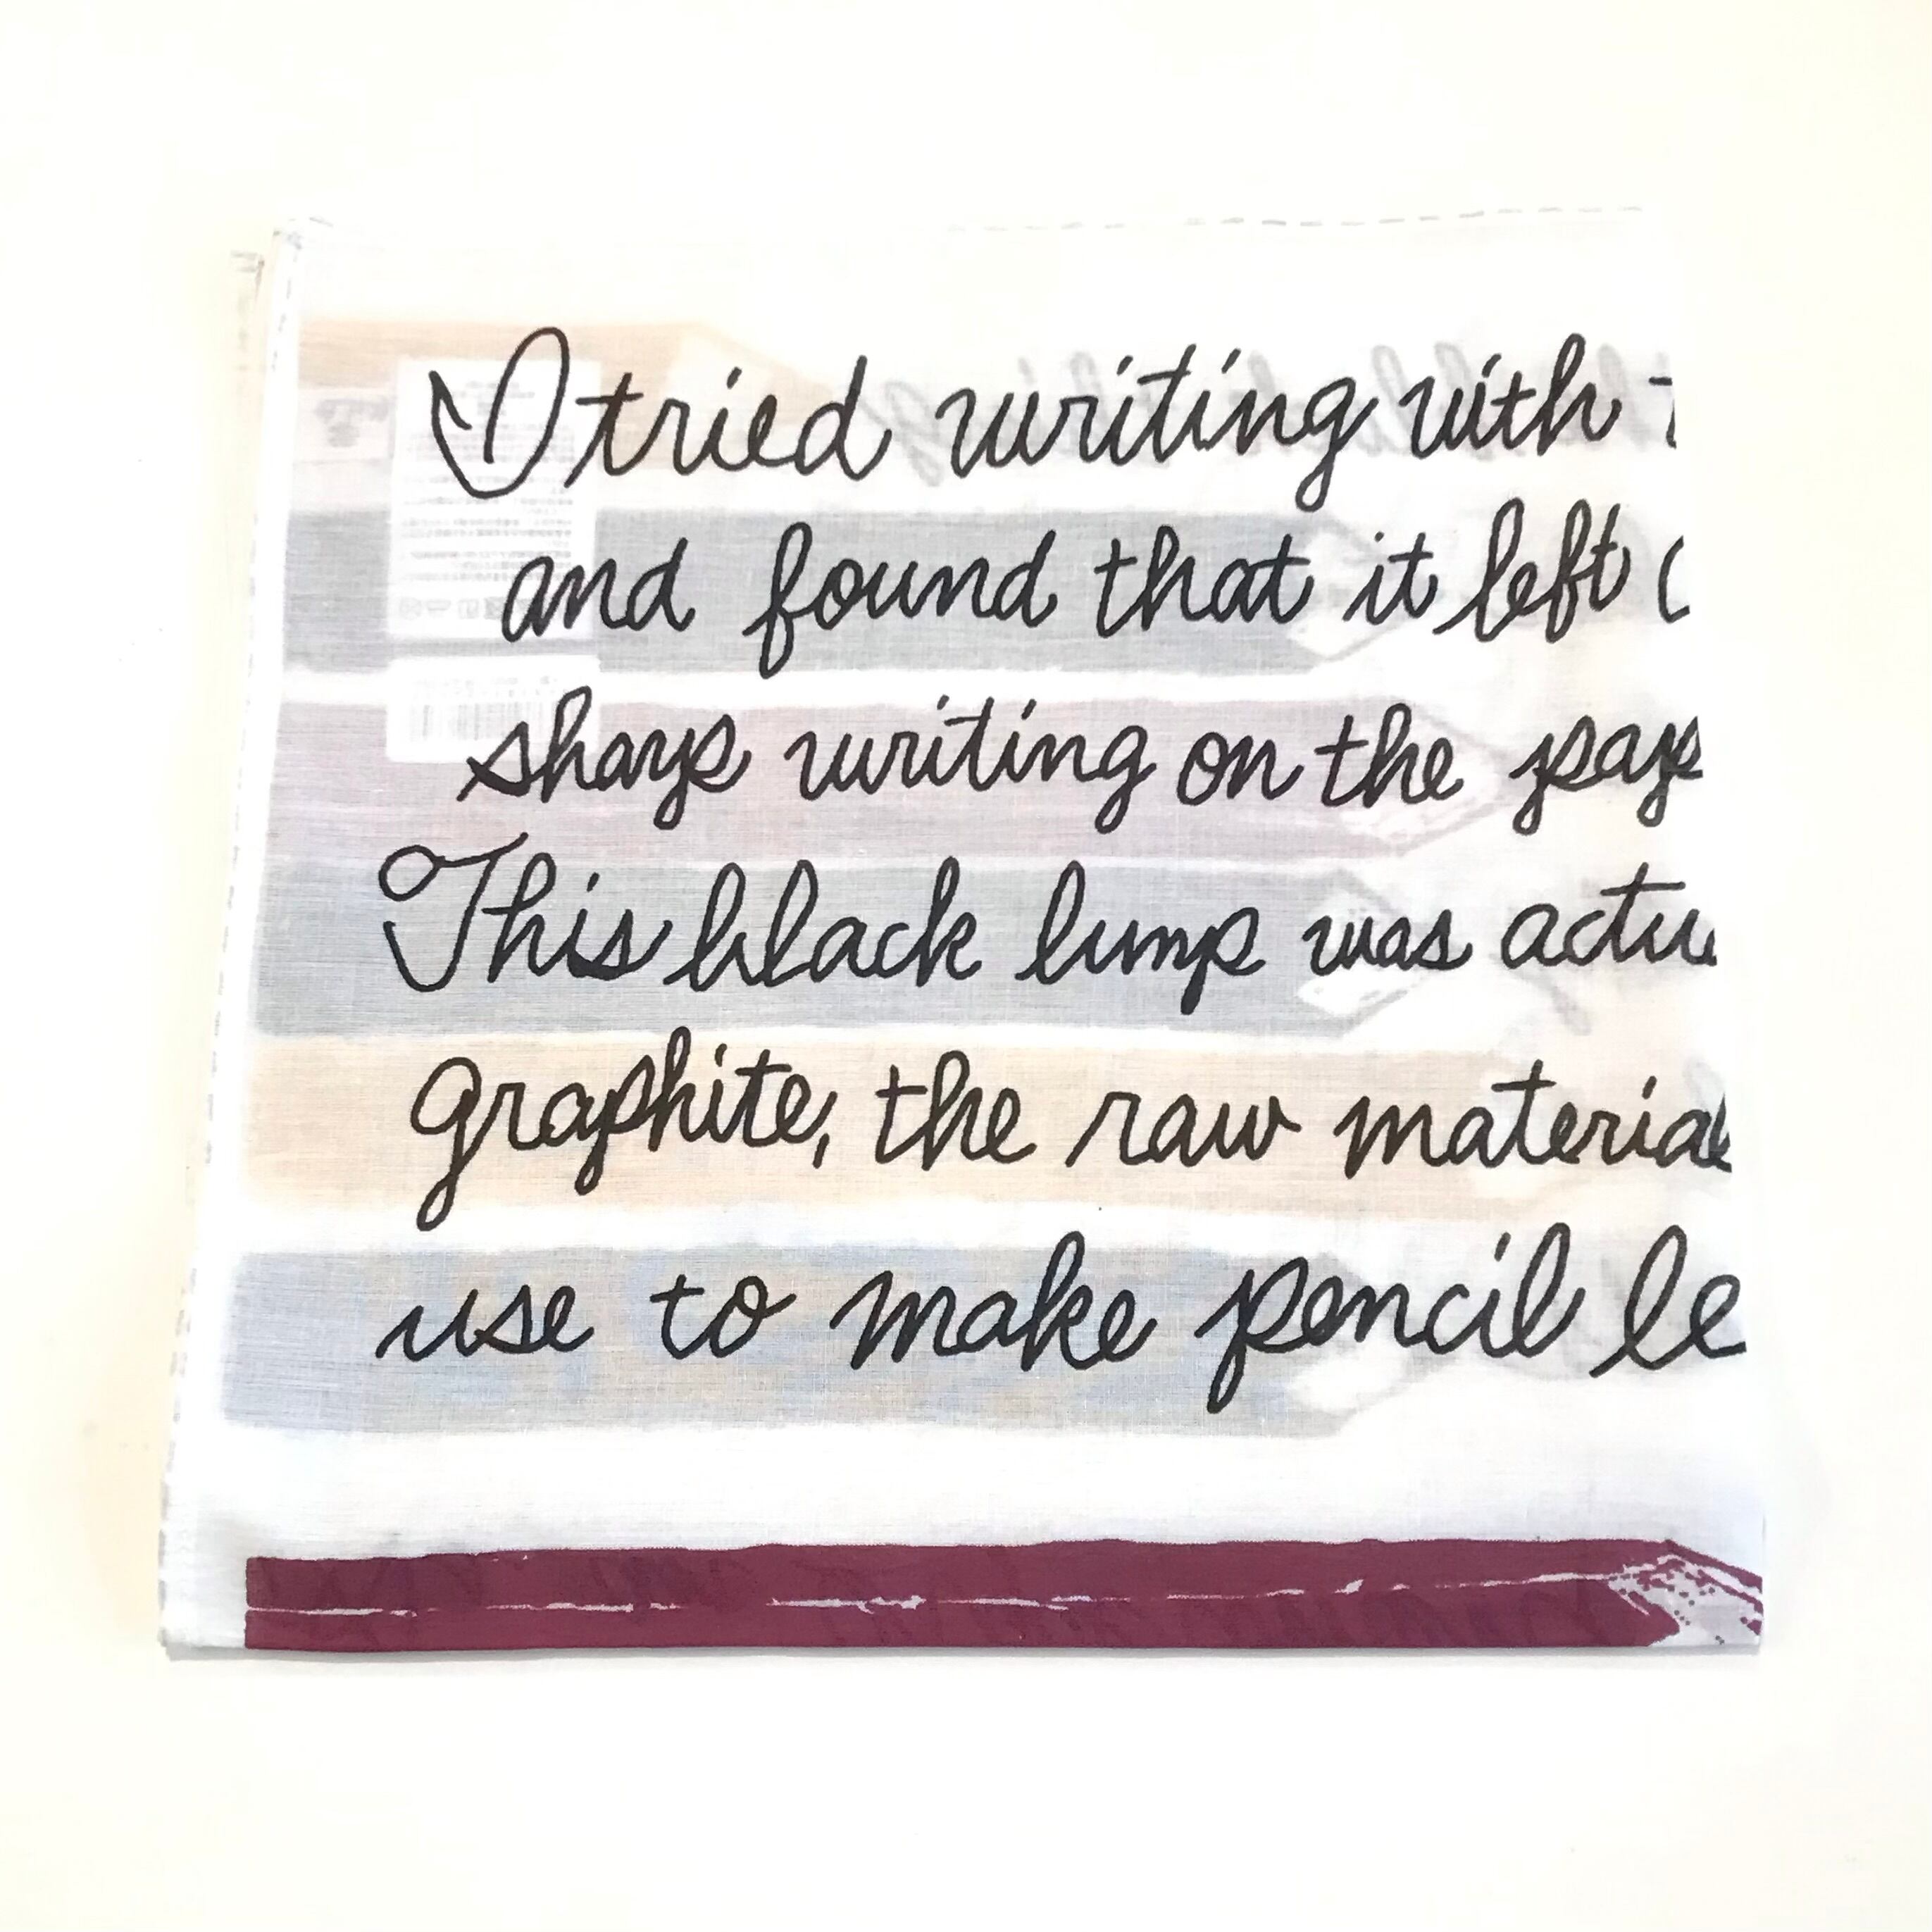 I tried writing with
and found that it left
sharp writing on the pap
This black lump was actu
graphite, the raw material
use to make pencil le